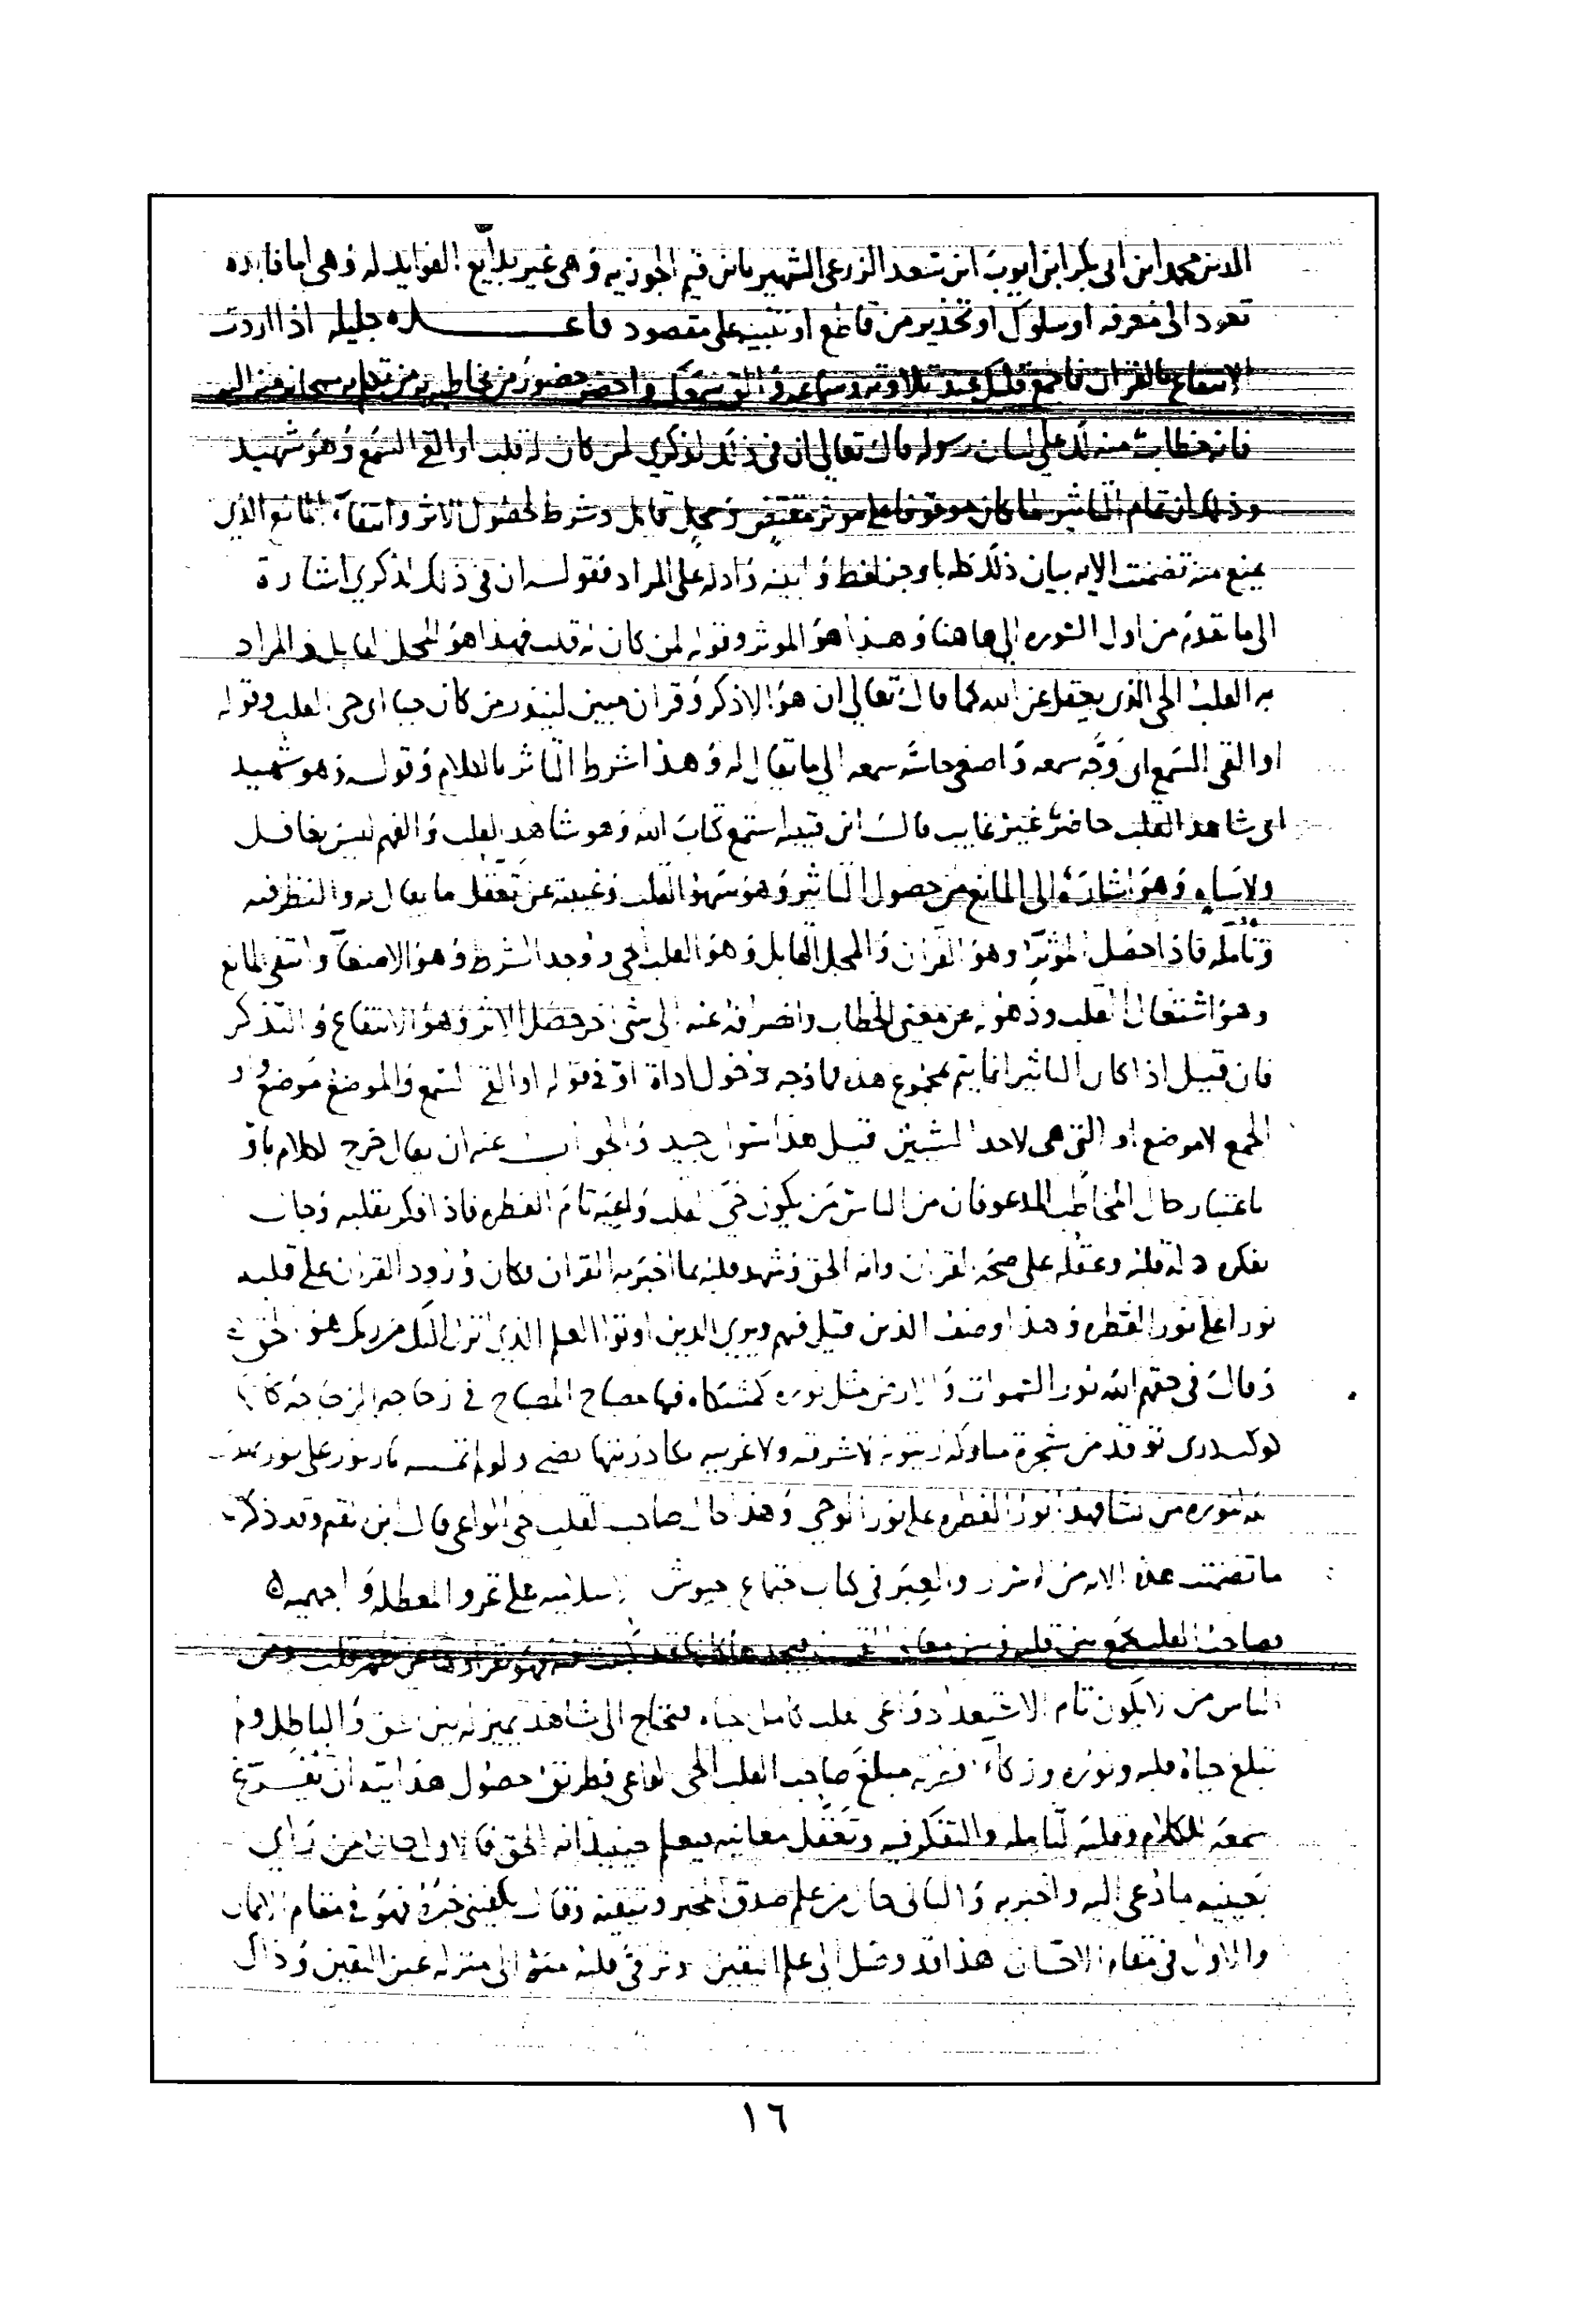 الدين محمد ابن ابى بكر ابن ايوب ابن سعد الزرعى الشهير بابن قيم الجوزيه وهى غير بدايع الفوايد له وهى اما فايده
تعود الى معرفه او سلوك او تحذير من قاطع او تنبيه على مقصود قاعده جليله اذا اردت
الانتفاع بالقران فاجمع قلبك عند تلاوته وسماعه والق سمعك واحضر حضور من يخاطبه به من تكلم به سبحانه منه اليه
فانه خطاب منه لك على لسان رسوله قال تعالى ان في ذلك لذكري لمن كان له قلب او القي السمع وهو شهيد
وذلك ان تمام التاثير لما كان موقوفا على موثر مقتض ومحل قابل وشرط لحصول الاثر وانتفآء المانع الذي
يمنع منه تضمنت الايه بيان ذلك كله باوجز لفظ وابينه وادله على المراد فقوله ان في ذلك لذكري اشارة
الى ما تقدم من اول السوره الى هاهنا وهذا هو الموثر وقوله لمن كان له قلب فهذا هو المحل القابل والمراد
به القلب الحى الذى يعقل عن الله كما قال تعالي ان هو الا ذكر وقران مبين لينذر من كان حيا اى حى القلب وقوله
او القى السمع اى وجه سمعه واصغى حاسة سمعه الي ما يقال له وهذا شرط التاثر بالكلام وقوله وهو شهيد
اى شاهد القلب حاضر غير غايب قال ابن قتيبه استمع كتاب الله وهو شاهد القلب والفهم ليس بغافل
ولا ساه وهو اشارة الى المانع من حصول التاثير وهو سهو القلب وغيبته عن تعقل ما يقال له والنظر فيه
وتامله فاذا حصل الموثر وهو القران والمحل القابل وهو القلب الحي ووجد الشرط وهو الاصغآ وانتفى المانع
وهو اشتغال القلب وذهوله عن معنى الخطاب وانصرافه عنه الى شى اخر حصل الاثر وهو الانتفاع والتذكر
فان قيل اذا كان التاثير انما يتم بمجموع هذه فما وجه دخول اداة او في قوله او القى السمع والموضع موضع واو
الجمع لا موضع او التى هى لاحد الشيئين قيل هذا سوال جيد والجواب عنه ان يقال خرج الكلام باو
باعتبار حال المخاطب المدعو فان من الناس من يكون حى القلب واعيه تام الفطره فاذا افكر بقلبه وجاب
بفكره دله قلبه وعقله على صحة القران وانه الحق وشهد قلبه بما اخبر به القران فكان ورود القران على قلبه
نورا على نور الفطره وهذا وصف الذين قيل فيهم ويري الذين اوتوا العلم الذي انزل اليك من ربك هو الحق
وقال في حقهم الله نور السموات والارض مثل نوره كمشكاه فيها مصباح المصباح في زجاجه الزجاجه كانها
كوكب درى توقد من شجرة مباركه زيتونه لا شرقيه ولا غربيه يكاد زيتها يضى ولو لم تمسسه نار نور على نور يهدى
الله لنوره من يشا فهذا نور الفطره على نور الوحي وهذا حال صاحب القلب الحي الواعى قال ابن القيم وقد ذكرت
ما تضمنت هذه الايه من الاسرار والعبر في كتاب اجتماع جيوش الاسلاميه على غزو المعطله والجهميه
فصاحب القلب يجمع بين قلبه وبين معانى القران فيجدها كانها قد كتبت فيه فهو يقراها عن ظهر قلب ومن
الناس من لا يكون تام الاستعداد واعى القلب كامل حياه فيحتاج الى شاهد يميز له بين الحق والباطل ولم
تبلغ حياة قلبه ونوره وزكآء فطرته مبلغ صاحب القلب الحى الواعى فطريق حصول هدايته ان يفرغ
سمعه للكلام وقلبه لتامله والتفكر فيه وتعقل معانيه فيعلم حينيذ انه الحق فالاول حال من راي
بعينيه ما دعى اليه واخبر به والثانى حال من علم صدق المخبر وتيقنه وقال يكفينى خبره فهو في مقام الايمان
والاول في مقام الاحسان هذا قد وصل الى علم اليقين وترقى قلبه منه الى منزله عين اليقين وذاك
١٦